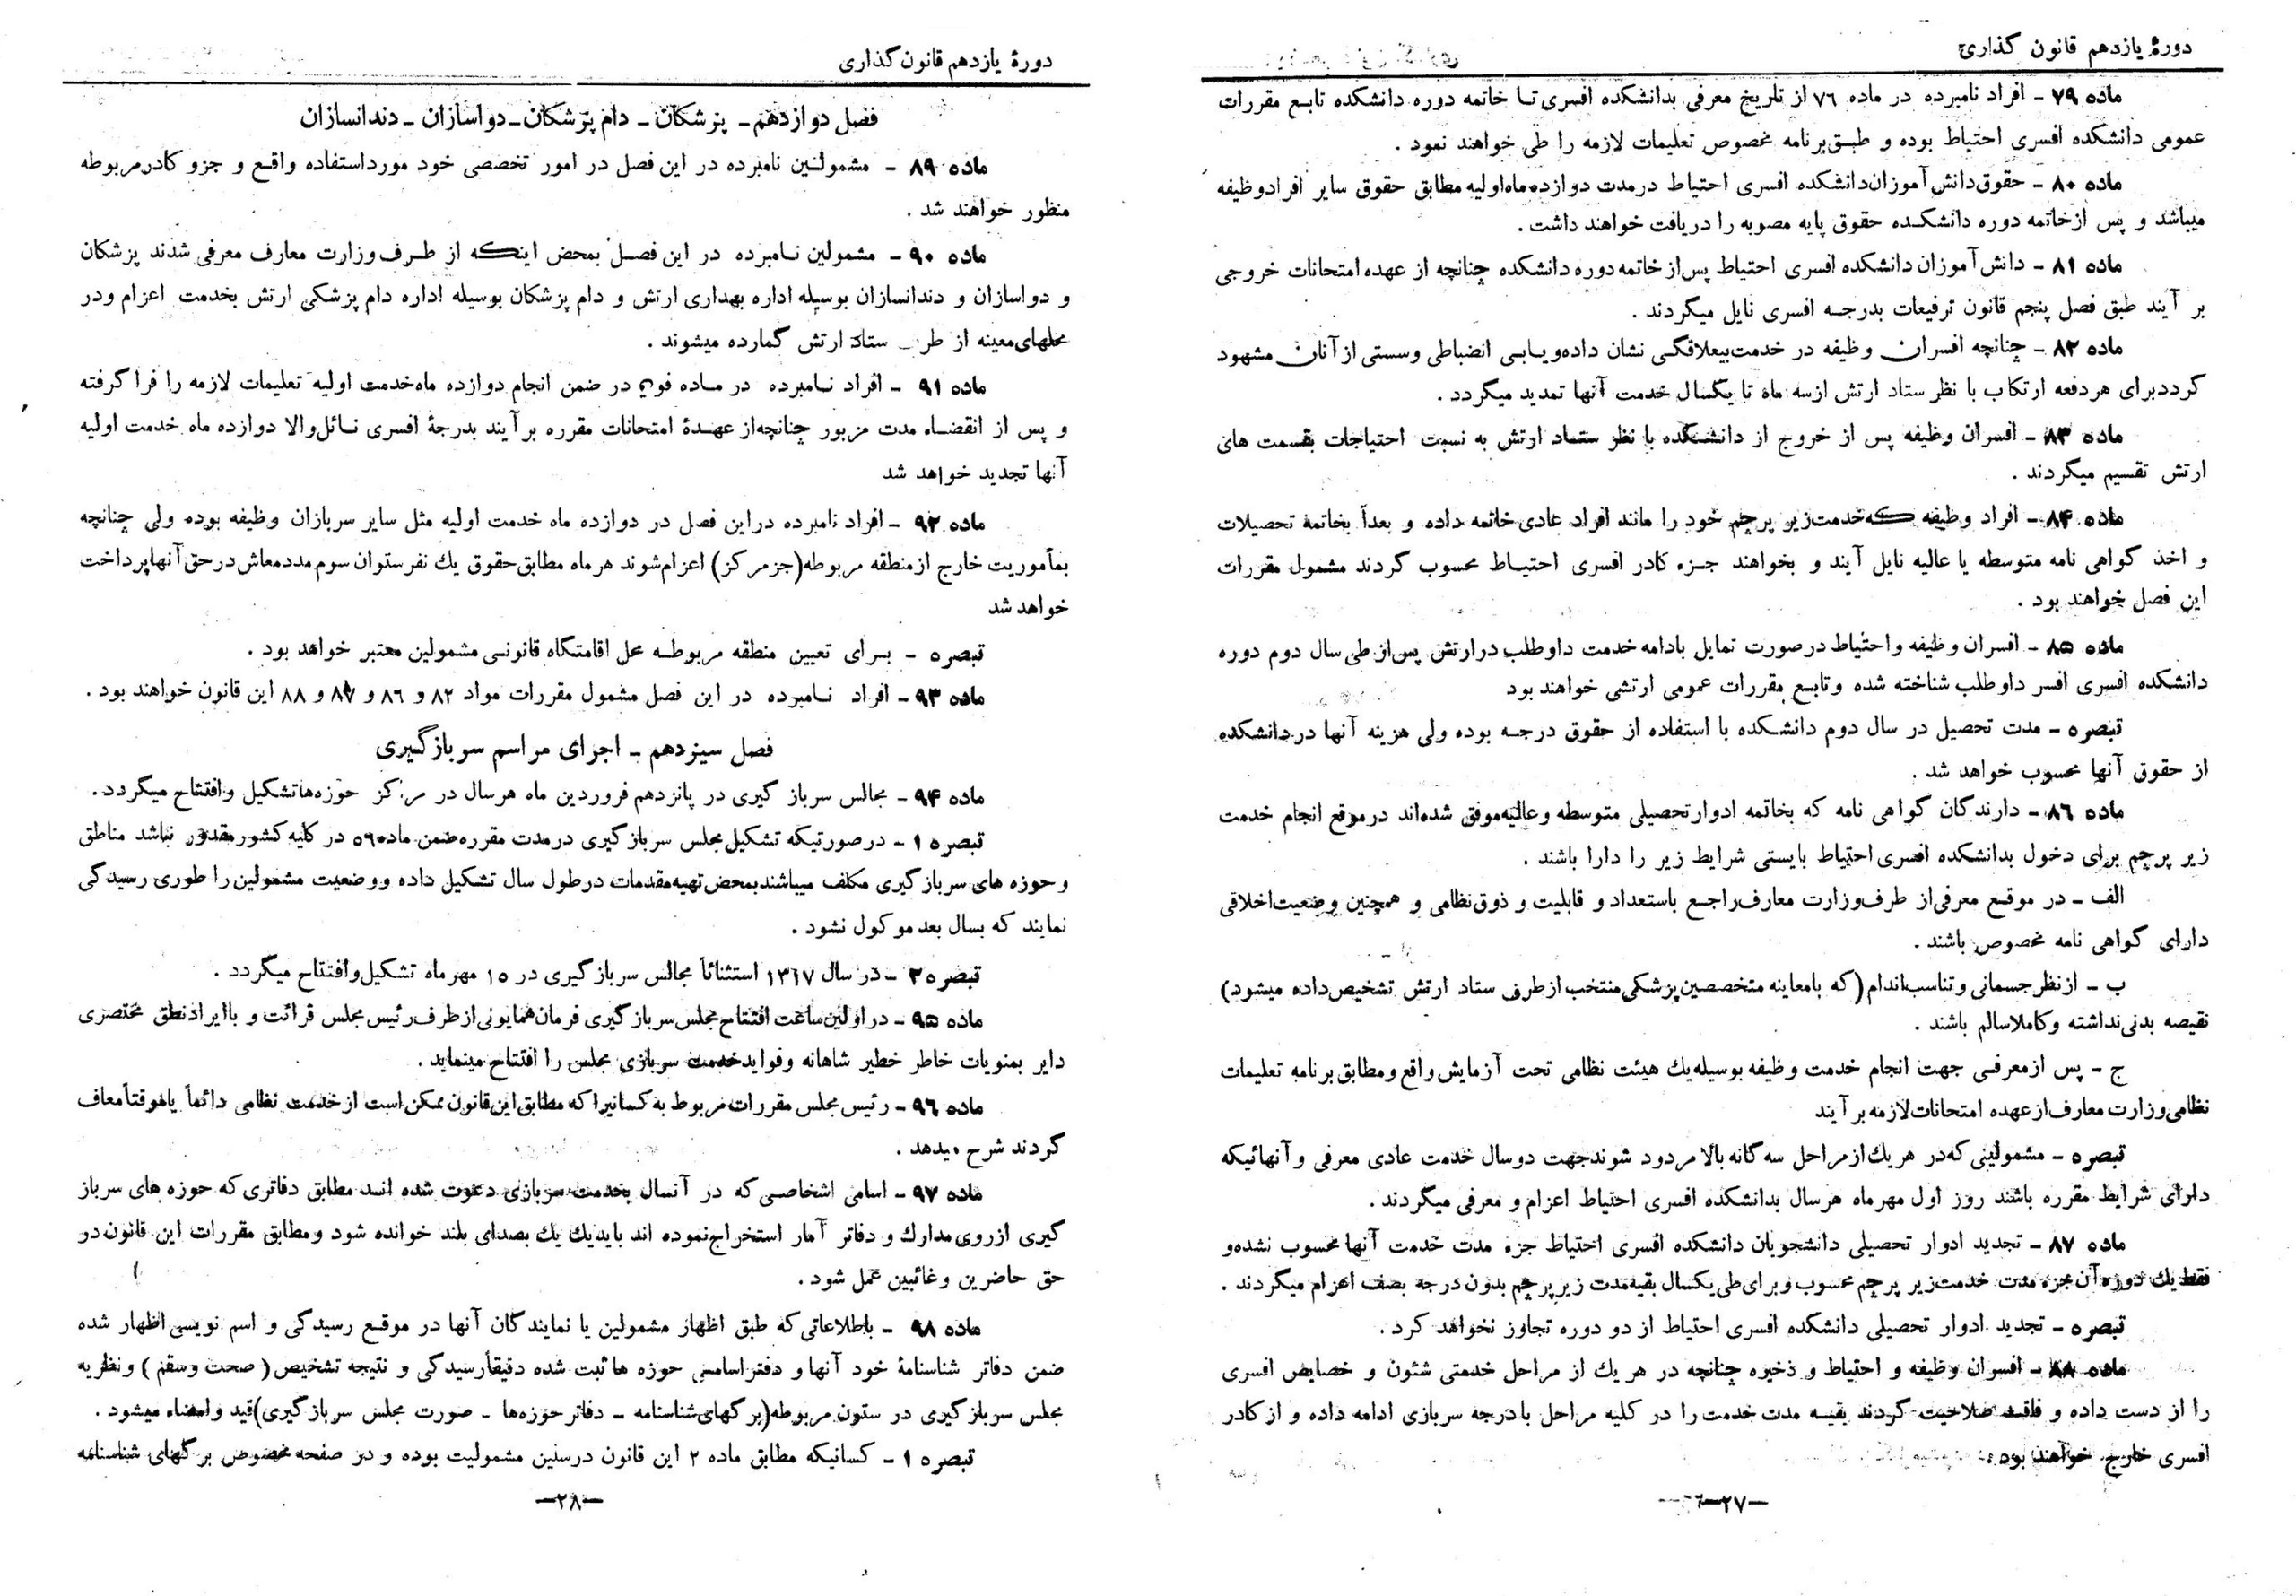 دورهٔ یازدهم قانون گذاری
ماده ۷۹ ـ افراد نامبرده در ماده ۷۶ از تاریخ معرفی بدانشکده افسری تا خاتمه دوره دانشکده تابع مقررات
عمومی دانشکده افسری احتیاط بوده و طبق برنامه مخصوص تعلیمات لازمه را طی خواهند نمود .
ماده ۸۰ ـ حقوق دانش آموزان دانشکده افسری احتیاط درمدت دوازده ماه اولیه مطابق حقوق سایر افراد وظیفه
میباشد و پس ازخاتمه دوره دانشکده حقوق پایه مصوبه را دریافت خواهند داشت .
ماده ۸۱ ـ دانش آموزان دانشکده افسری احتیاط پس از خاتمه دوره دانشکده چنانچه از عهده امتحانات خروجی
بر آیند طبق فصل پنجم قانون ترفیعات بدرجه افسری نایل میگردند .
ماده ۸۲ ـ چنانچه افسران وظیفه در خدمت بیعلاقگی نشان داده ویا بی انضباطی وسستی از آنان مشهود
گردد برای هردفعه ارتکاب با نظر ستاد ارتش ازسه ماه تا یکسال خدمت آنها تمدید میگردد .
ماده ۸۳ ـ افسران وظیفه پس از خروج از دانشکده با نظر ستاد ارتش به نسبت احتیاجات بقسمت های
ارتش تقسیم میگردند .
ماده ۸۴ ـ افراد وظیفه که خدمت زیر پرچم خود را مانند افراد عادی خاتمه داده و بعداً بخاتمهٔ تحصیلات
و اخذ گواهی نامه متوسطه یا عالیه نایل آیند و بخواهند جزء کادر افسری احتیاط محسوب گردند مشمول مقررات
این فصل خواهند بود .
ماده ۸۵ ـ افسران وظیفه واحتیاط درصورت تمایل بادامه خدمت داوطلب درارتش پس از طی سال دوم دوره
دانشکده افسری افسر داوطلب شناخته شده وتابع مقررات عمومی ارتشی خواهند بود
تبصره ـ مدت تحصیل در سال دوم دانشکده با استفاده از حقوق درجه بوده ولی هزینه آنها در دانشکده
از حقوق آنها محسوب خواهد شد .
ماده ۸۶ ـ دارندگان گواهی نامه که بخاتمه ادوار تحصیلی متوسطه و عالیه موفق شده‌اند درموقع انجام خدمت
زیر پرچم برای دخول بدانشکده افسری احتیاط بایستی شرایط زیر را دارا باشند .
الف ـ در موقع معرفی از طرف وزارت معارف راجع باستعداد و قابلیت و ذوق نظامی و همچنین وضعیت اخلاقی
دارای گواهی نامه مخصوص باشند .
ب ـ ازنظر جسمانی و تناسب اندام (که بامعاینه متخصصین پزشکی منتخب ازطرف ستاد ارتش تشخیص داده میشود)
نقیصه بدنی نداشته وکاملا سالم باشند .
ج ـ پس از معرفی جهت انجام خدمت وظیفه بوسیله یك هیئت نظامی تحت آزمایش واقع ومطابق برنامه تعلیمات
نظامی وزارت معارف از عهده امتحانات لازمه بر آیند
تبصره ـ مشمولینی که در هریك از مراحل سه گانه بالا مردود شوند جهت دوسال خدمت عادی معرفی و آنهائیکه
دارای شرایط مقرره باشند روز اول مهرماه هرسال بدانشکده افسری احتیاط اعزام و معرفی میگردند .
ماده ۸۷ ـ تجدید ادوار تحصیلی دانشجویان دانشکده افسری احتیاط جزء مدت خدمت آنها محسوب نشده و
فقط یك دوره آن جزء مدت خدمت زیر پرچم محسوب و برای طی یکسال بقیه مدت زیر پرچم بدون درجه بصف اعزام میگردند .
تبصره ـ تجدید ادوار تحصیلی دانشکده افسری احتیاط از دو دوره تجاوز نخواهد کرد .
ماده ۸۸ ـ افسران وظیفه و احتیاط و ذخیره چنانچه در هر یك از مراحل خدمتی شئون و خصایص افسری
را از دست داده و فاقد صلاحیت گردند بقیه مدت خدمت را در کلیه مراحل بادرجه سربازی ادامه داده و از کادر
افسری خارج خواهند بود .
—۲۷—
دورهٔ یازدهم قانون گذاری
فصل دوازدهم ـ پزشکان ـ دام پزشکان ـ دواسازان ـ دندانسازان
ماده ۸۹ ـ مشمولین نامبرده در این فصل در امور تخصصی خود مورد استفاده واقع و جزو کادر مربوطه
منظور خواهند شد .
ماده ۹۰ ـ مشمولین نامبرده در این فصل بمحض اینکه از طرف وزارت معارف معرفی شدند پزشکان
و دواسازان و دندانسازان بوسیله اداره بهداری ارتش و دام پزشکان بوسیله اداره دام پزشکی ارتش بخدمت اعزام ودر
محلهای معینه از طرف ستاد ارتش گمارده میشوند .
ماده ۹۱ ـ افراد نامبرده در ماده فوق در ضمن انجام دوازده ماه خدمت اولیه تعلیمات لازمه را فرا گرفته
و پس از انقضاء مدت مزبور چنانچه از عهدهٔ امتحانات مقرره بر آیند بدرجهٔ افسری نائل والا دوازده ماه خدمت اولیه
آنها تجدید خواهد شد
ماده ۹۲ ـ افراد نامبرده دراین فصل در دوازده ماه خدمت اولیه مثل سایر سربازان وظیفه بوده ولی چنانچه
بمأموریت خارج از منطقه مربوطه (جز مرکز) اعزام شوند هرماه مطابق حقوق یك نفر ستوان سوم مددمعاش در حق آنها پرداخت
خواهد شد
تبصره ـ برای تعیین منطقه مربوطه محل اقامتگاه قانونی مشمولین معتبر خواهد بود .
ماده ۹۳ ـ افراد نامبرده در این فصل مشمول مقررات مواد ۸۲ و ۸۶ و ۸۷ و ۸۸ این قانون خواهند بود .
فصل سیزدهم ـ اجرای مراسم سربازگیری
ماده ۹۴ ـ مجالس سرباز گیری در پانزدهم فروردین ماه هرسال در مراکز حوزه‌ها تشکیل وافتتاح میگردد .
تبصره ۱ ـ درصورتیکه تشکیل مجلس سرباز گیری درمدت مقرره ضمن ماده ۵۹ در کلیه کشور مقدور نباشد مناطق
و حوزه های سرباز گیری مکلف میباشند بمحض تهیه مقدمات درطول سال تشکیل داده ووضعیت مشمولین را طوری رسیدگی
نمایند که بسال بعد موکول نشود .
تبصره ۲ ـ در سال ۱۳۱۷ استثنائاً مجالس سرباز گیری در ۱۵ مهر ماه تشکیل وافتتاح میگردد .
ماده ۹۵ ـ در اولین ساعت افتتاح مجلس سرباز گیری فرمان همایونی از طرف رئیس مجلس قرائت و با ایراد نطق مختصری
دایر بمنویات خاطر خطیر شاهانه وفواید خدمت سربازی مجلس را افتتاح مینماید .
ماده ۹۶ ـ رئیس مجلس مقررات مربوط به کسانیرا که مطابق این قانون ممکن است از خدمت نظامی دائماً یا موقتاً معاف
گردند شرح میدهد .
ماده ۹۷ ـ اسامی اشخاصی که در آنسال بخدمت سربازی دعوت شده اند مطابق دفاتری که حوزه های سرباز
گیری ازروی مدارك و دفاتر آمار استخراج نموده اند باید یك یك بصدای بلند خوانده شود ومطابق مقررات این قانون در
حق حاضرین وغائبین عمل شود .
ماده ۹۸ ـ باطلاعاتی که طبق اظهار مشمولین یا نمایندگان آنها در موقع رسیدگی و اسم نویسی اظهار شده
ضمن دفاتر شناسنامهٔ خود آنها و دفتر اساسی حوزه ها ثبت شده دقیقاً رسیدگی و نتیجه تشخیص (صحت وسقم) و نظریه
مجلس سرباز گیری در ستون مربوطه (برگهای شناسنامه ـ دفاتر حوزه‌ها ـ صورت مجلس سرباز گیری) قید وامضاء میشود .
تبصره ۱ ـ کسانیکه مطابق ماده ۲ این قانون درسنین مشمولیت بوده و در صفحه مخصوص برگهای شناسنامه
—۲۸—